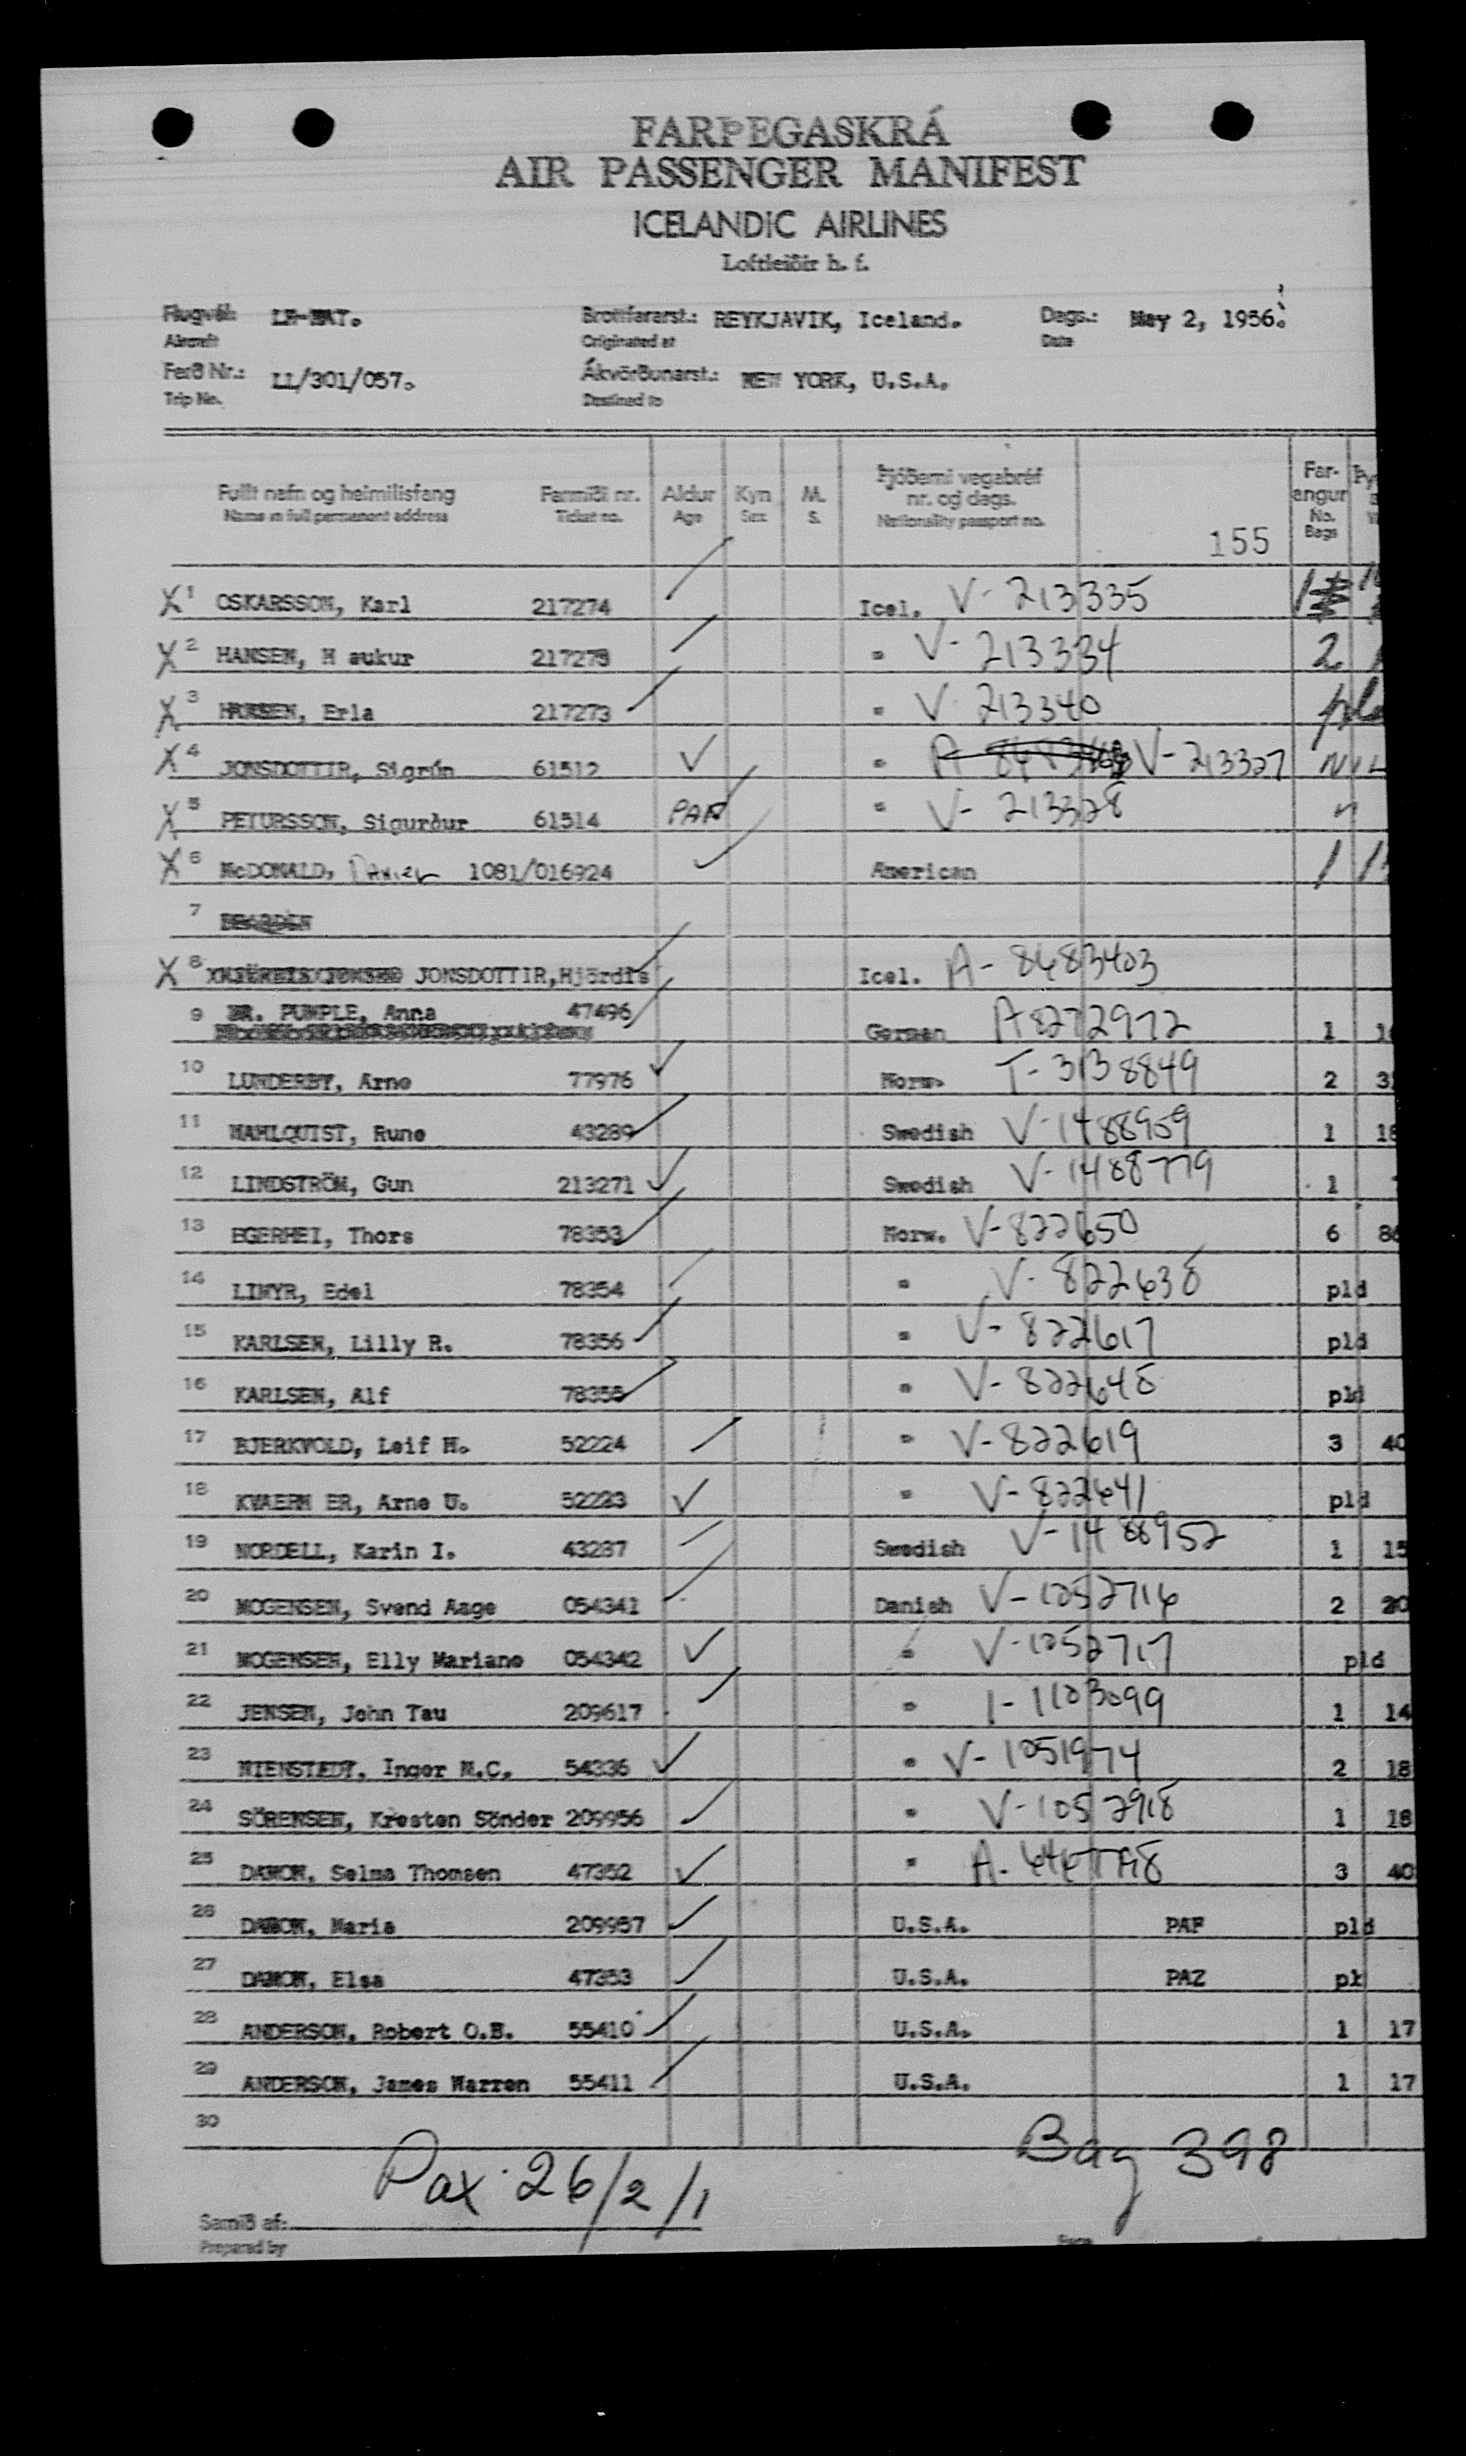 FARÞEGASKRÁ
AIR PASSENGER MANIFEST
ICELANDIC AIRLINES
Loftleiðir h. f.
Flugvél: Brottfararst.: REYKJAVIK, Iceland. Dags.: May 2, 1956.
Aircraft Originated at Date
Ferð Nr.: LL/301/057. Ákvörðunarst.: NEW YORK, U.S.A.
Trip No. Destined to
Fullt nafn og heimilisfang Farmiði nr. Aldur Kyn M. Þjóðerni vegabréf nr. og dags. Far-angur
Name in full permanent address Ticket no. Age Sex S. Nationality passport no. 155 No. Bags
X 1 OSKARSSON, Karl 217274 Icel. V-213335 1
X 2 HANSEN, H aukur 217275 " V-213334 2
X 3 HANSEN, Erla 217273 " V 213340 pld
X 4 JONSDOTTIR, Sigrún 61512 " V-213327 NIL
X 5 PETURSSON, Sigurður 61514 PAF " V-213328 "
X 6 McDONALD, Daniel 1081/016924 American 1
7
X 8 JONSDOTTIR, Hjördis Icel. A-8683403
9 PUMPLE, Anna 47496 German A8272972 1
10 LUNDERBY, Arne 77976 Norw. T-3138849 2
11 MAHLQUIST, Rune 43289 Swedish V-1488959 1 18
12 LINDSTRÖM, Gun 213271 Swedish V-1488779 1
13 EGERHEI, Thors 78353 Norw. V-822650 6
14 LINYR, Edel 78354 " V-822638 pld
15 KARLSEN, Lilly R. 78356 " V-822617 pld
16 KARLSEN, Alf 78355 " V-822648 pld
17 BJERKVOLD, Leif H. 52224 " V-822619 3 40
18 KVAERN ER, Arne U. 52223 " V-822641 pld
19 NORDELL, Karin I. 43287 Swedish V-1488952 1 15
20 MOGENSEN, Svend Aage 054341 Danish V-1052716 2 20
21 MOGENSEN, Elly Mariane 054342 " V-1052717 pld
22 JENSEN, John Tau 209617 " I-1103099 1 14
23 NIENSTÆDT, Inger M.C. 54336 " V-1051974 2 18
24 SÖRENSEN, Kresten Sönder 209956 " V-1052918 1 18
25 DAMON, Selma Thomsen 47352 " 3 40
26 DAMON, Maria 209957 U.S.A. PAF pld
27 DAMON, Elsa 47353 U.S.A. PAZ pk
28 ANDERSON, Robert O.B. 55410 U.S.A. 1 17
29 ANDERSON, James Warren 55411 U.S.A. 1 17
30
Pax 26/2/1 Bag 398
Samið af:
Prepared by